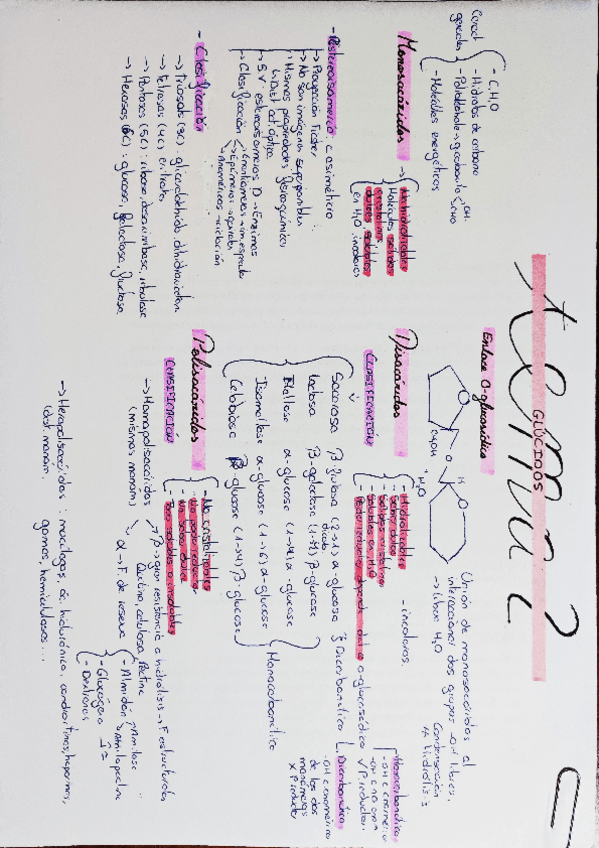 Tema 2
GLÚCIDOS
Caract generales
- C, H, O
- Hidratos de carbono
- Polialcohole + g. carbonilo
- Moléculas energéticas
Monosacáridos
→ No hidrolizables
Moléculas sólidas
cristalinas
dulces, solubles
en H2O, incoloros
- Estereoisomería: C asimétrico
→ Proyección Fischer
→ No son imágenes superponibles
→ Mismas propiedades fisicoquímicas
↳ Dist. act. óptica
→ S.V estereoisómeros D → Enzimas
→ Clasificación
Enantiómeros → im. especular
Epímeros →
Anómeros → ciclación
- Clasificación
→ Triosas (3C): gliceraldehído dihidroxiacetona
→ Tetrosas (4C) eritrosa
→ Pentosas (5C): ribosa, desoxirribosa, ribulosa
→ Hexosas (6C): glucosa, galactosa, fructosa
Enlace O-glucosídico
CH2OH
O
H2O
Unión de monosacáridos al
interaccionar dos grupos -OH libres.
→ libera H2O
Condensación
≠ hidrólisis
Disacáridos
- Hidrolizables
- Sabor dulce
- Sólidos cristalinos
- Solubles en H2O
- Poder reductor depende del e. o-glucosídico
- incoloros.
Monocarbonílico
-OH C anomérico
-OH C no anom
✓ P. reductor
Dicarbonílico
-OH C anomérico
de los dos
monómeros
X P. reductor
CLASIFICACIÓN
Sacarosa β fructosa (2→1) α glucosa } Dicarbonílico
Lactosa β-galactosa (1→4) β-glucosa
Maltosa α-glucosa (1→4) α-glucosa
Isomaltosa α-glucosa (1→6) α-glucosa
Celobiosa β-glucosa (1→4) β-glucosa
Monocarbonílico
Polisacáridos
- No cristalizables
- No poder reductor
- No sabor dulce
- Poco solubles o insolubles
CLASIFICACIÓN
→ Homopolisacáridos
(mismos monom)
β → gran resistencia a hidrólisis → F. estructural
Quitina, celulosa, Pectina
α → F. de reserva
- Almidón
Amilosa
Amilopectina
- Glucógeno
- Dextranos
→ Heteropolisacáridos: mucílagos, ác. hialurónico, condroitinas, heparinas,
(dist. monom.
gomas, hemicelulosas...